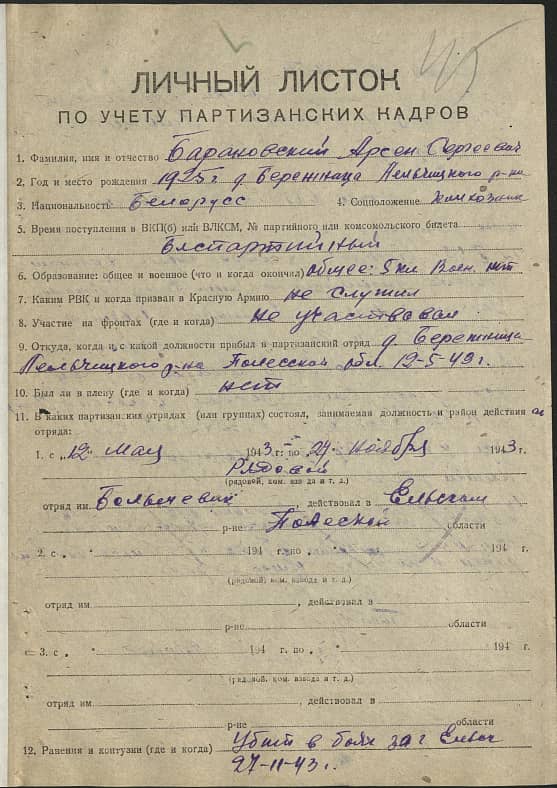 ЛИЧНЫЙ ЛИСТОК
ПО УЧЕТУ ПАРТИЗАНСКИХ КАДРОВ
1. Фамилия, имя и отчество Барановский Арсен Сергеевич
2. Год и место рождения 1925 г д Бережница Лельчицкого р-на
3. Национальность Белорусс 4. Соцположение Колхозник
5. Время поступления в ВКП(б) или ВЛКСМ, № партийного или комсомольского билета
Беспартийный
6. Образование: общее и военное (что и когда окончил) общее: 5 кл Воен. нет
7. Каким РВК и когда призван в Красную Армию не служил
8. Участие на фронтах (где и когда) не участвовал
9. Откуда, когда и с какой должности прибыл в партизанский отряд д. Бережница
Лельчицкого р-на Полесской обл. 12-5-43 г.
10. Был ли в плену (где и когда) нет
11. В каких партизанских отрядах (или группах) состоял, занимаемая должность и район действия
отряда:
1. с „12" Мая 1943 г. по "27" Ноября 1943 г.
Рядовой
(рядовой, ком. взвода и т. д.)
отряд им Большевик, действовал в Ельском
р-не Полеской области
2. с „ " 194 г. по „ " 194 г.
(рядовой, ком. взвода и т. д.)
отряд им , действовал в
р-не области
3. с „ " 194 г. по „ " 194 г.
(рядовой, ком. взвода и т. д.)
отряд им , действовал в
р-не области
12. Ранения и контузии (где и когда) Убит в бою за г Ельск
27-11-43 г.